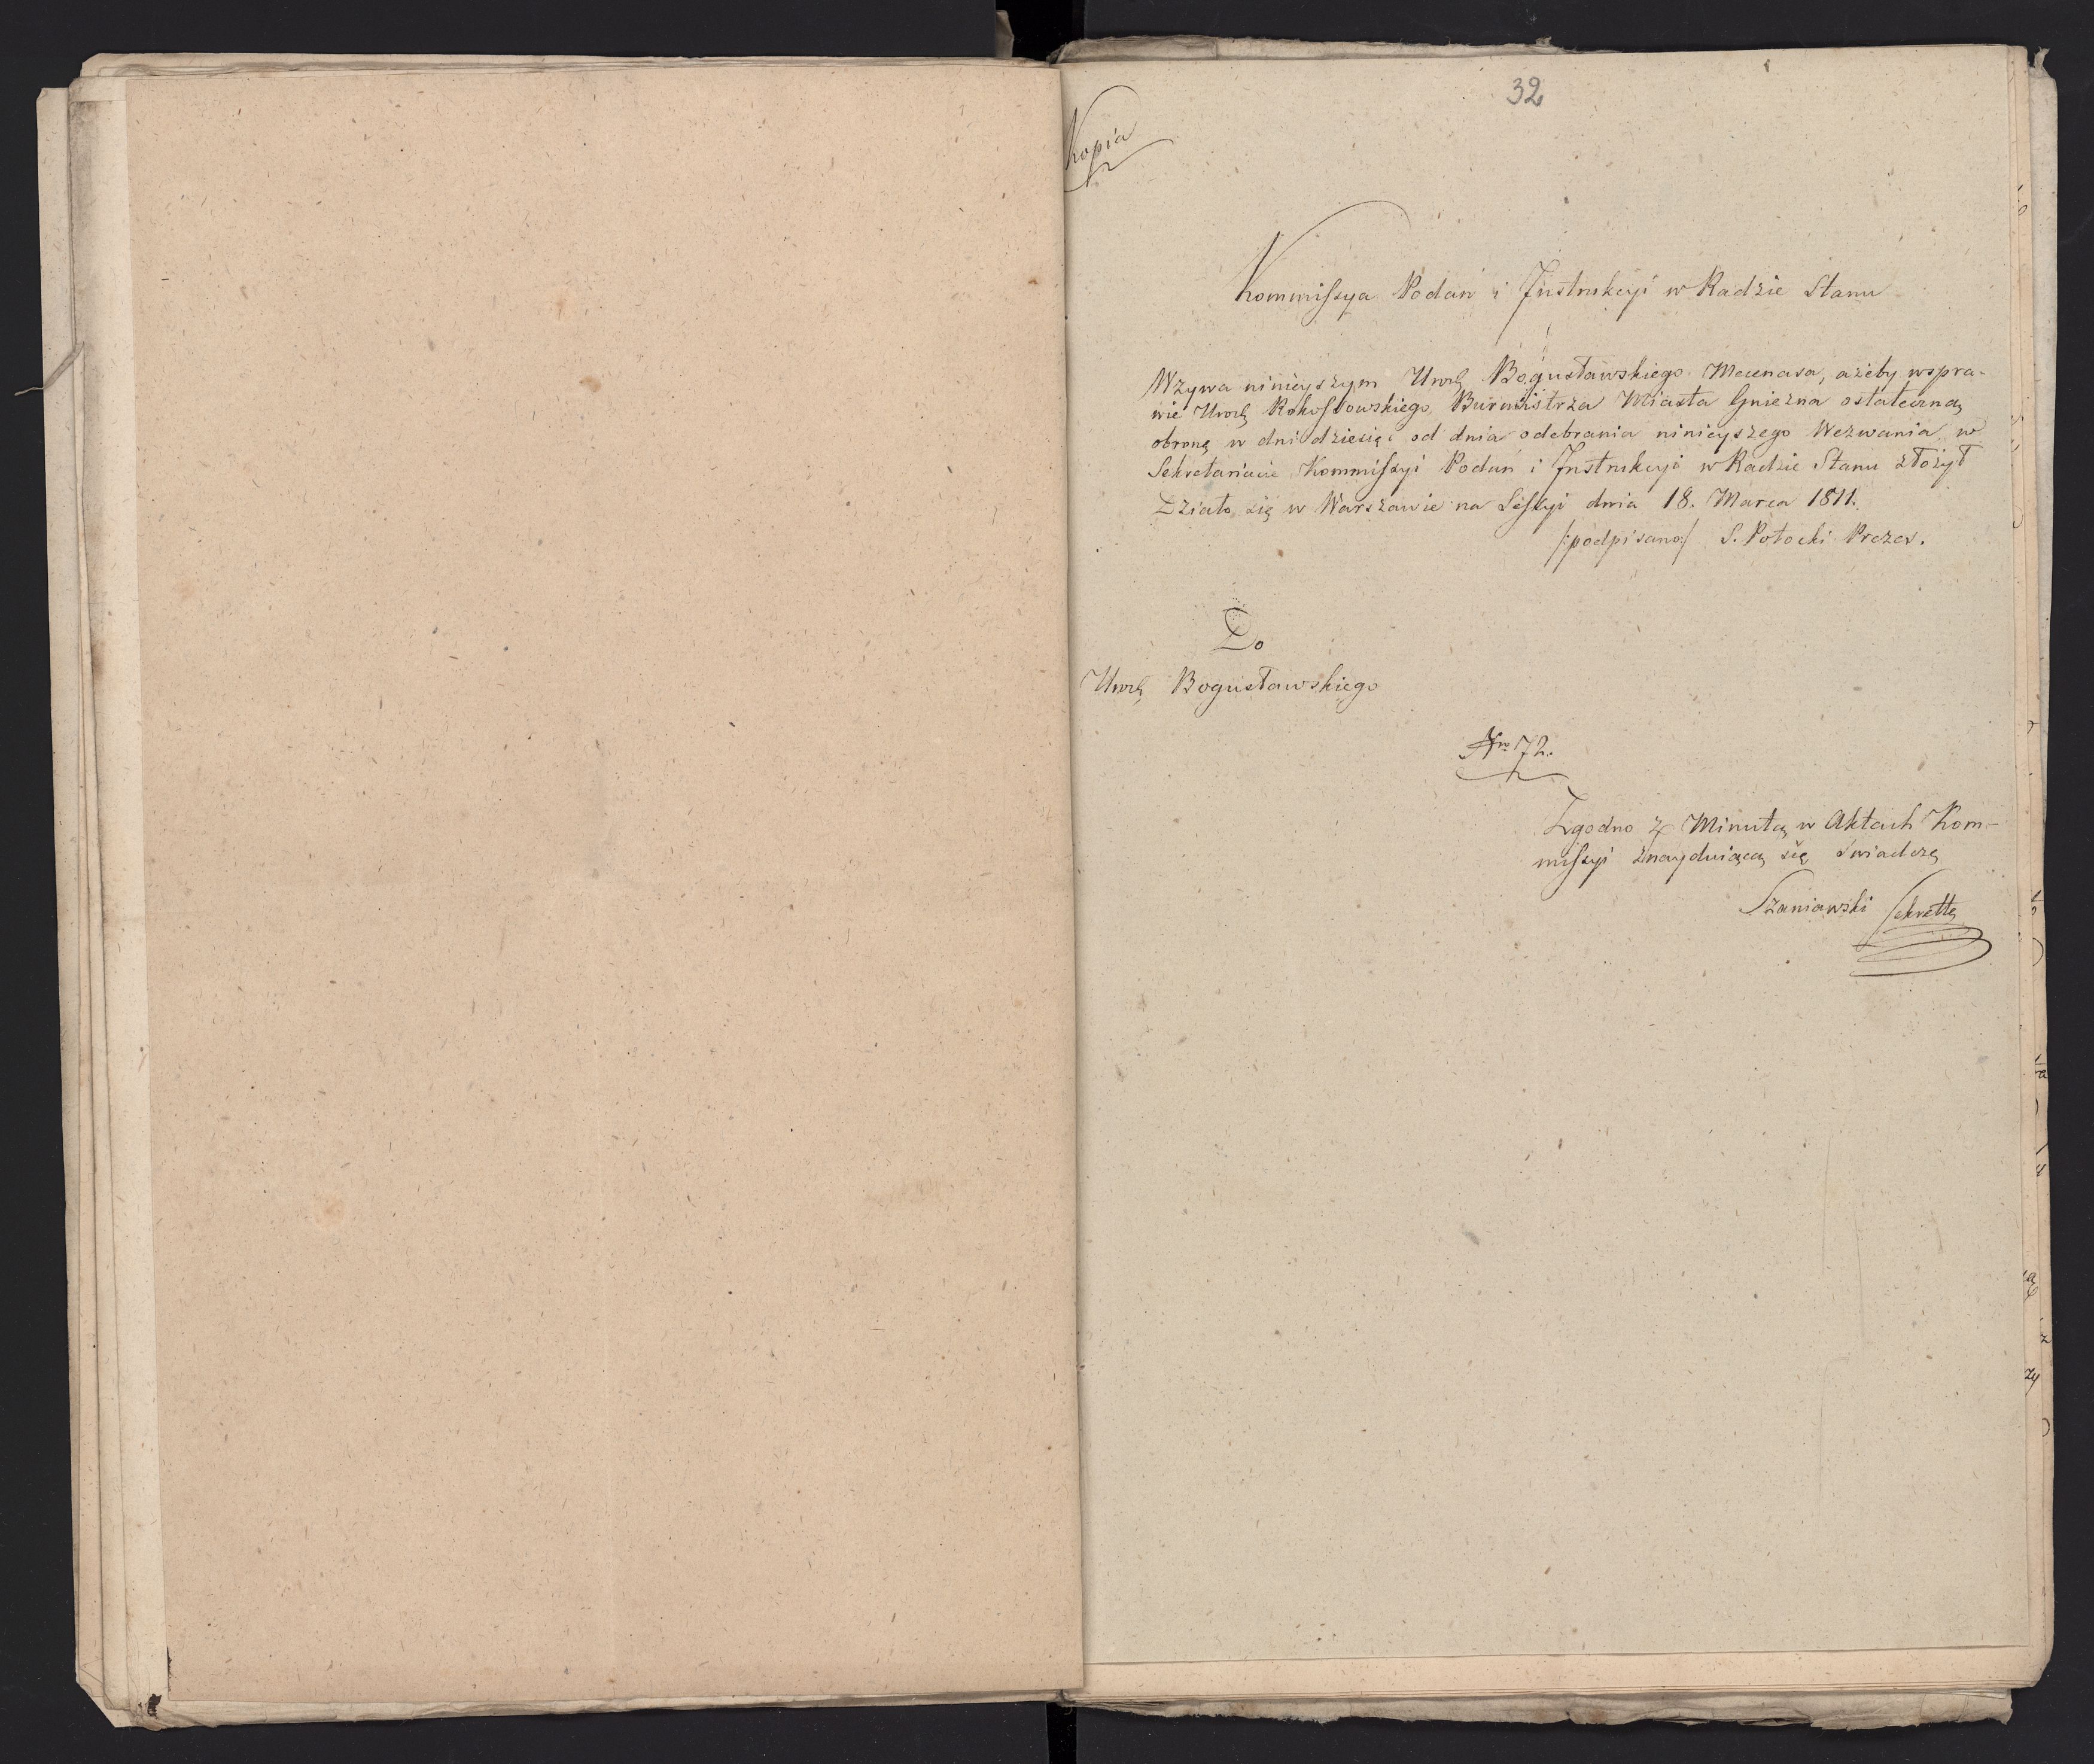 32
Kopia
Kommissya Podań i Instrukcyi w Radzie Stanu
Wzywa ninieyszym Urodz Bogusławskiego Mecenasa, ażeby wspra-
wie Urodz Rokossowskiego Burmistrza Miasta Gniezna ostateczną
obronę w dni dziesięć od dnia odebrania ninieyszego Wezwania w
Sekretariacie Kommissyi Podań i Instrukcyi w Radzie Stanu złożył
Działo się w Warszawie na Sessyi dnia 18. Marca 1811.
/:podpisano:/ S. Potocki Prezes.
Do
Urodz Bogusławskiego
Nro 72.
Zgodno z Minutą w Aktach Kom-
missyi znayduiącą się świadczę
Szaniawski Sekrettz